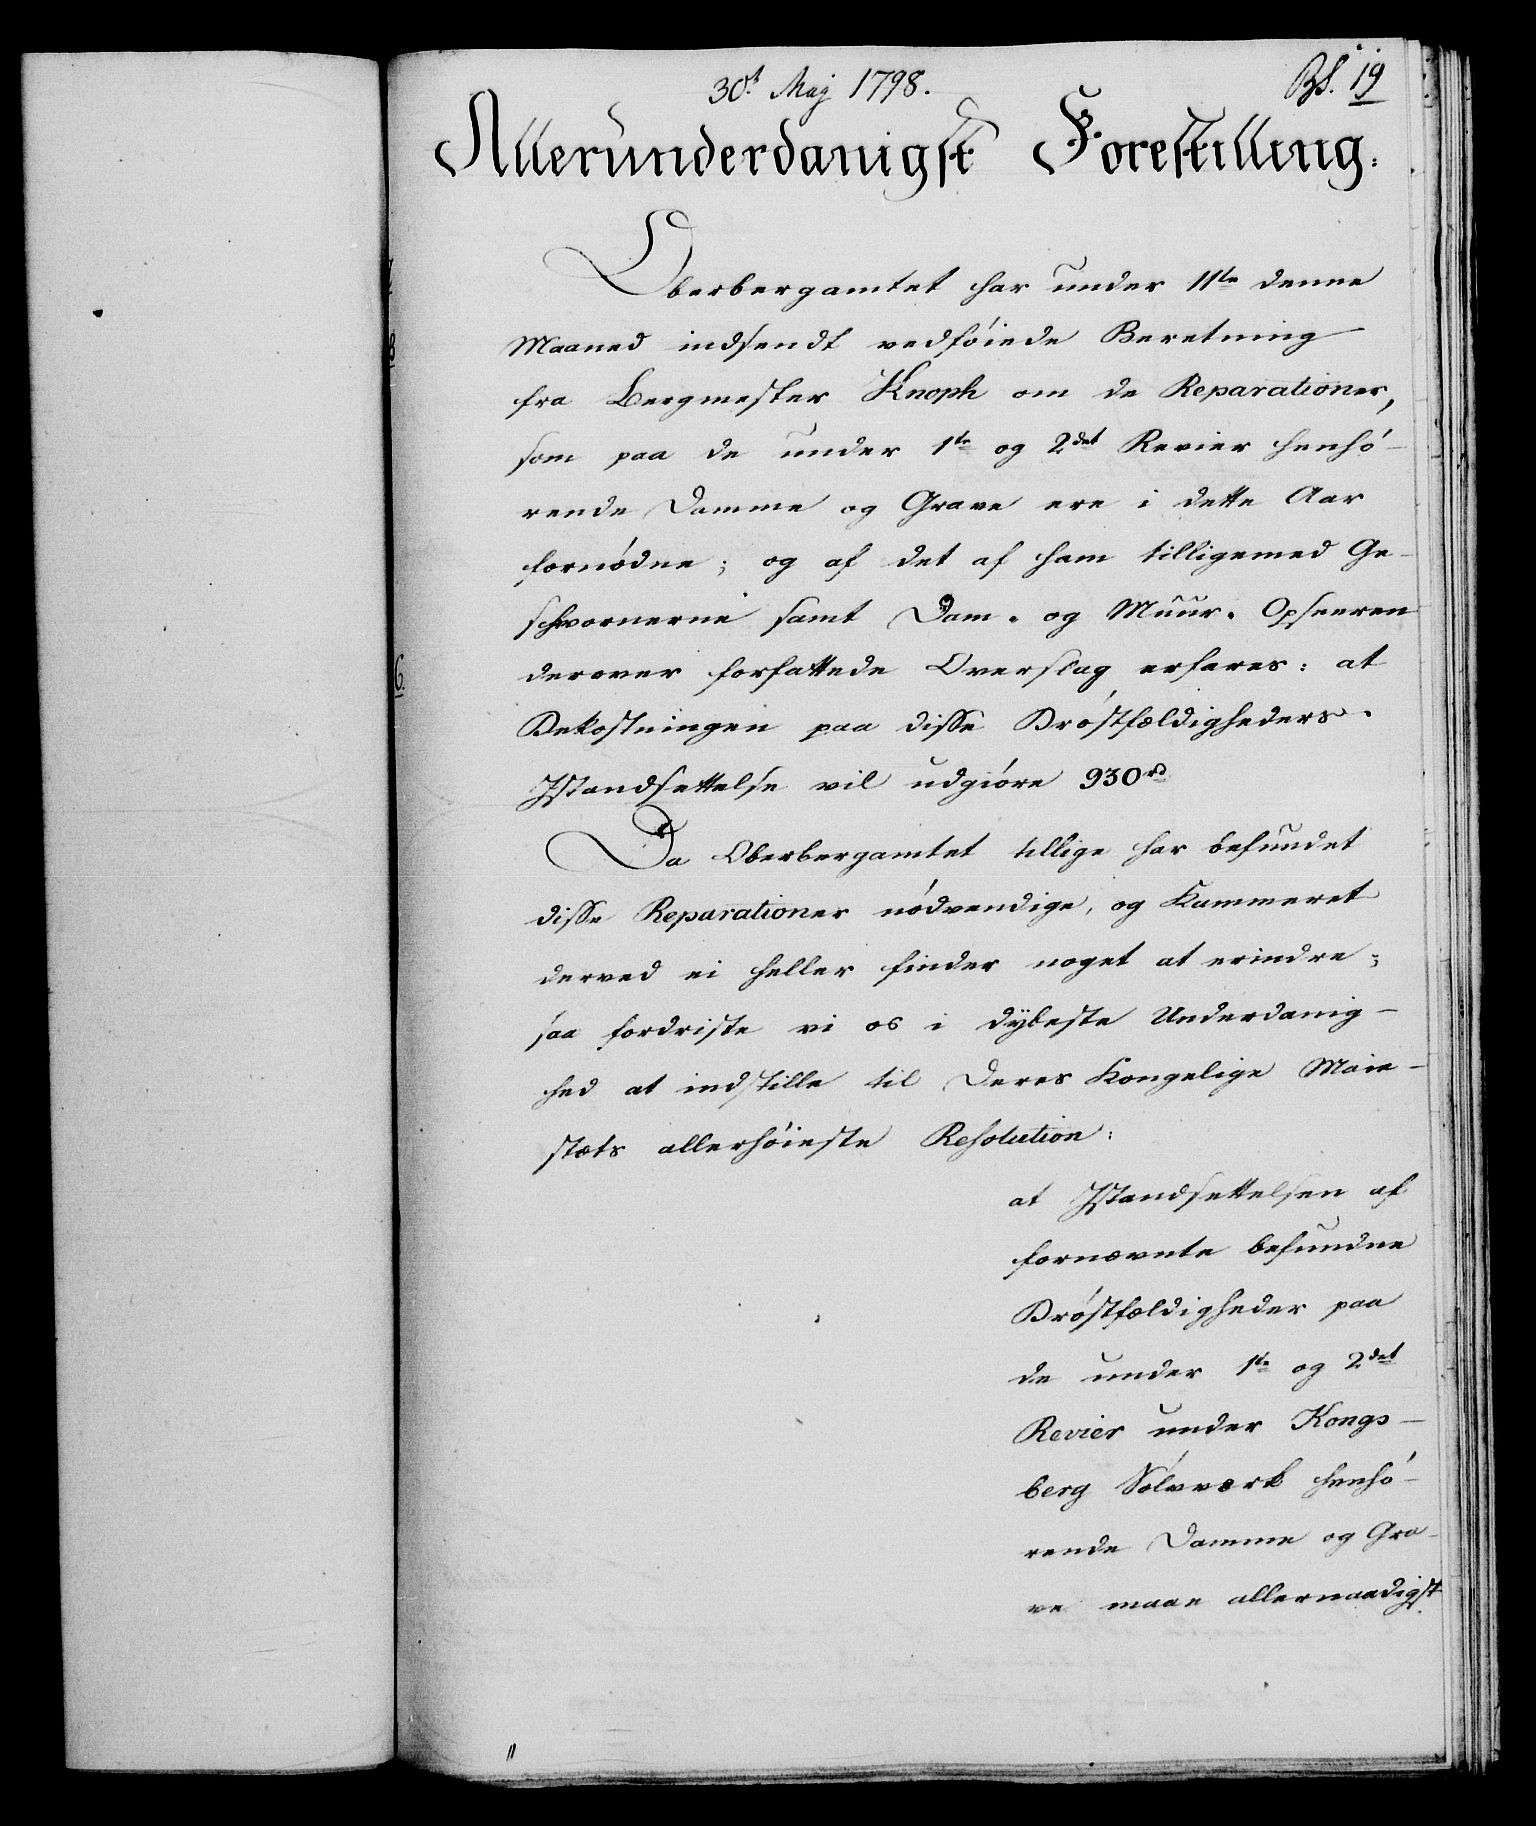 30t Maj 1798.
Bs. 19
Allerunderdanigst Forestilling:
Oberbergamtet har under 11te denne
Maaned indsendt vedføiede Beretning
fra Bergmester Knoph om de Reparationer,
som paa de under 1te og 2det Revier henhø-
rende Damme og Grave ere i dette Aar
fornødne; og af det af ham tilligemed Ge-
schwornerne samt Dam- og Muur- Opseeren
derover forfattede Overslag erfares: at
Bekostningen paa disse Brøstfældigheders
Istandsettelse vil udgiøre 930 rd
Da Oberbergamtet tillige har befundet
disse Reparationer nødvendige, og Kammeret
derved ei heller finder noget at erindre;
saa fordriste vi os i dybeste Underdanig-
hed at indstille til Deres Kongelige Maie-
stæts allerhøieste Resolution:
at Istandsettelsen af
fornævnte befundne
Brøstfældigheder paa
de under 1te og 2det
Revier under Kongs-
berg Sølvværk henhø-
rende Damme og Gra-
ve maae allernaadigst